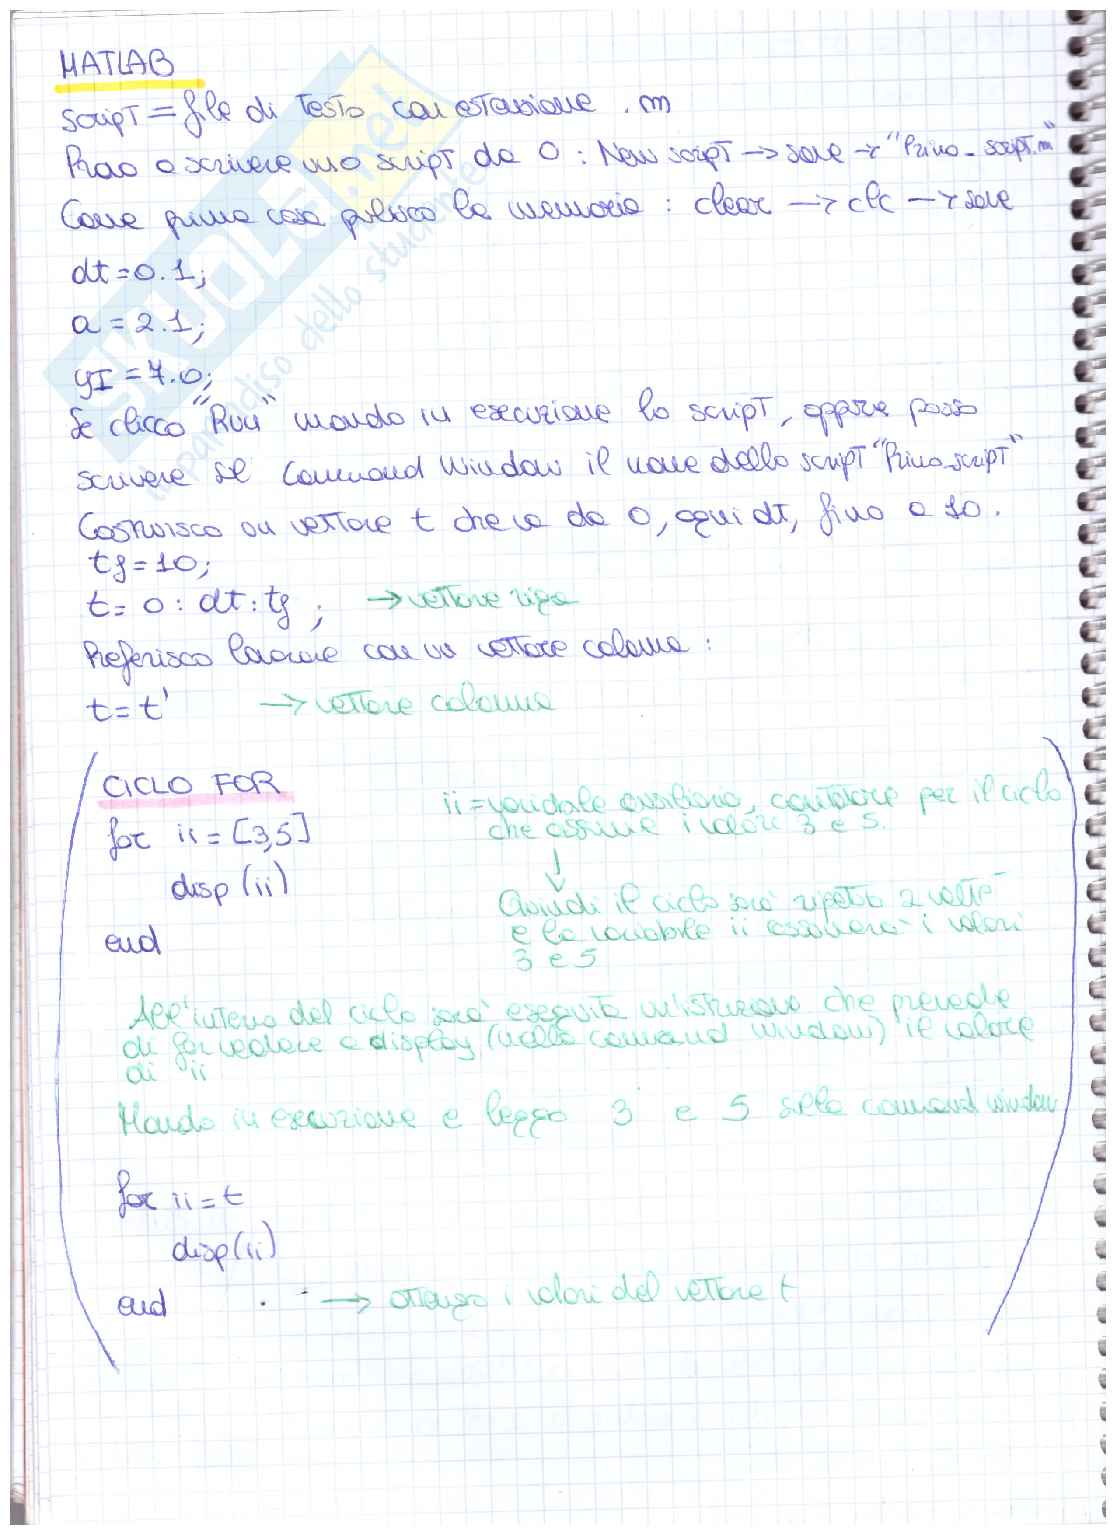 MATLAB
script = file di testo con estensione .m
Provo a scrivere uno script da 0: New script → save → "Primo_script.m"
Come prima cosa pulisco la memoria: clear → clc → save
dt = 0.1;
a = 2.1;
yI = 7.0;
Se clicco "Run" mando in esecuzione lo script, oppure posso
scrivere sul Command Window il nome dello script "Primo_script"
Costruisco un vettore t che va da 0, ogni dt, fino a 10.
tf = 10;
t = 0 : dt : tf ; → vettore riga
Preferisco lavorare con un vettore colonna:
t = t' → vettore colonna
CICLO FOR
for ii = [3,5]
disp (ii)
end
ii = variabile ausiliaria, contatore per il ciclo
che assume i valori 3 e 5.
↓
Quindi il ciclo sarà ripetuto 2 volte
e la variabile ii assumerà i valori
3 e 5
All'interno del ciclo sarà eseguita un'istruzione che prevede
di far vedere a display (nella command window) il valore
di ii
Mando in esecuzione e leggo 3 e 5 sulla command window
for ii = t
disp(ii)
end → ottengo i valori del vettore t
SKUOLA.net
il paradiso dello studente